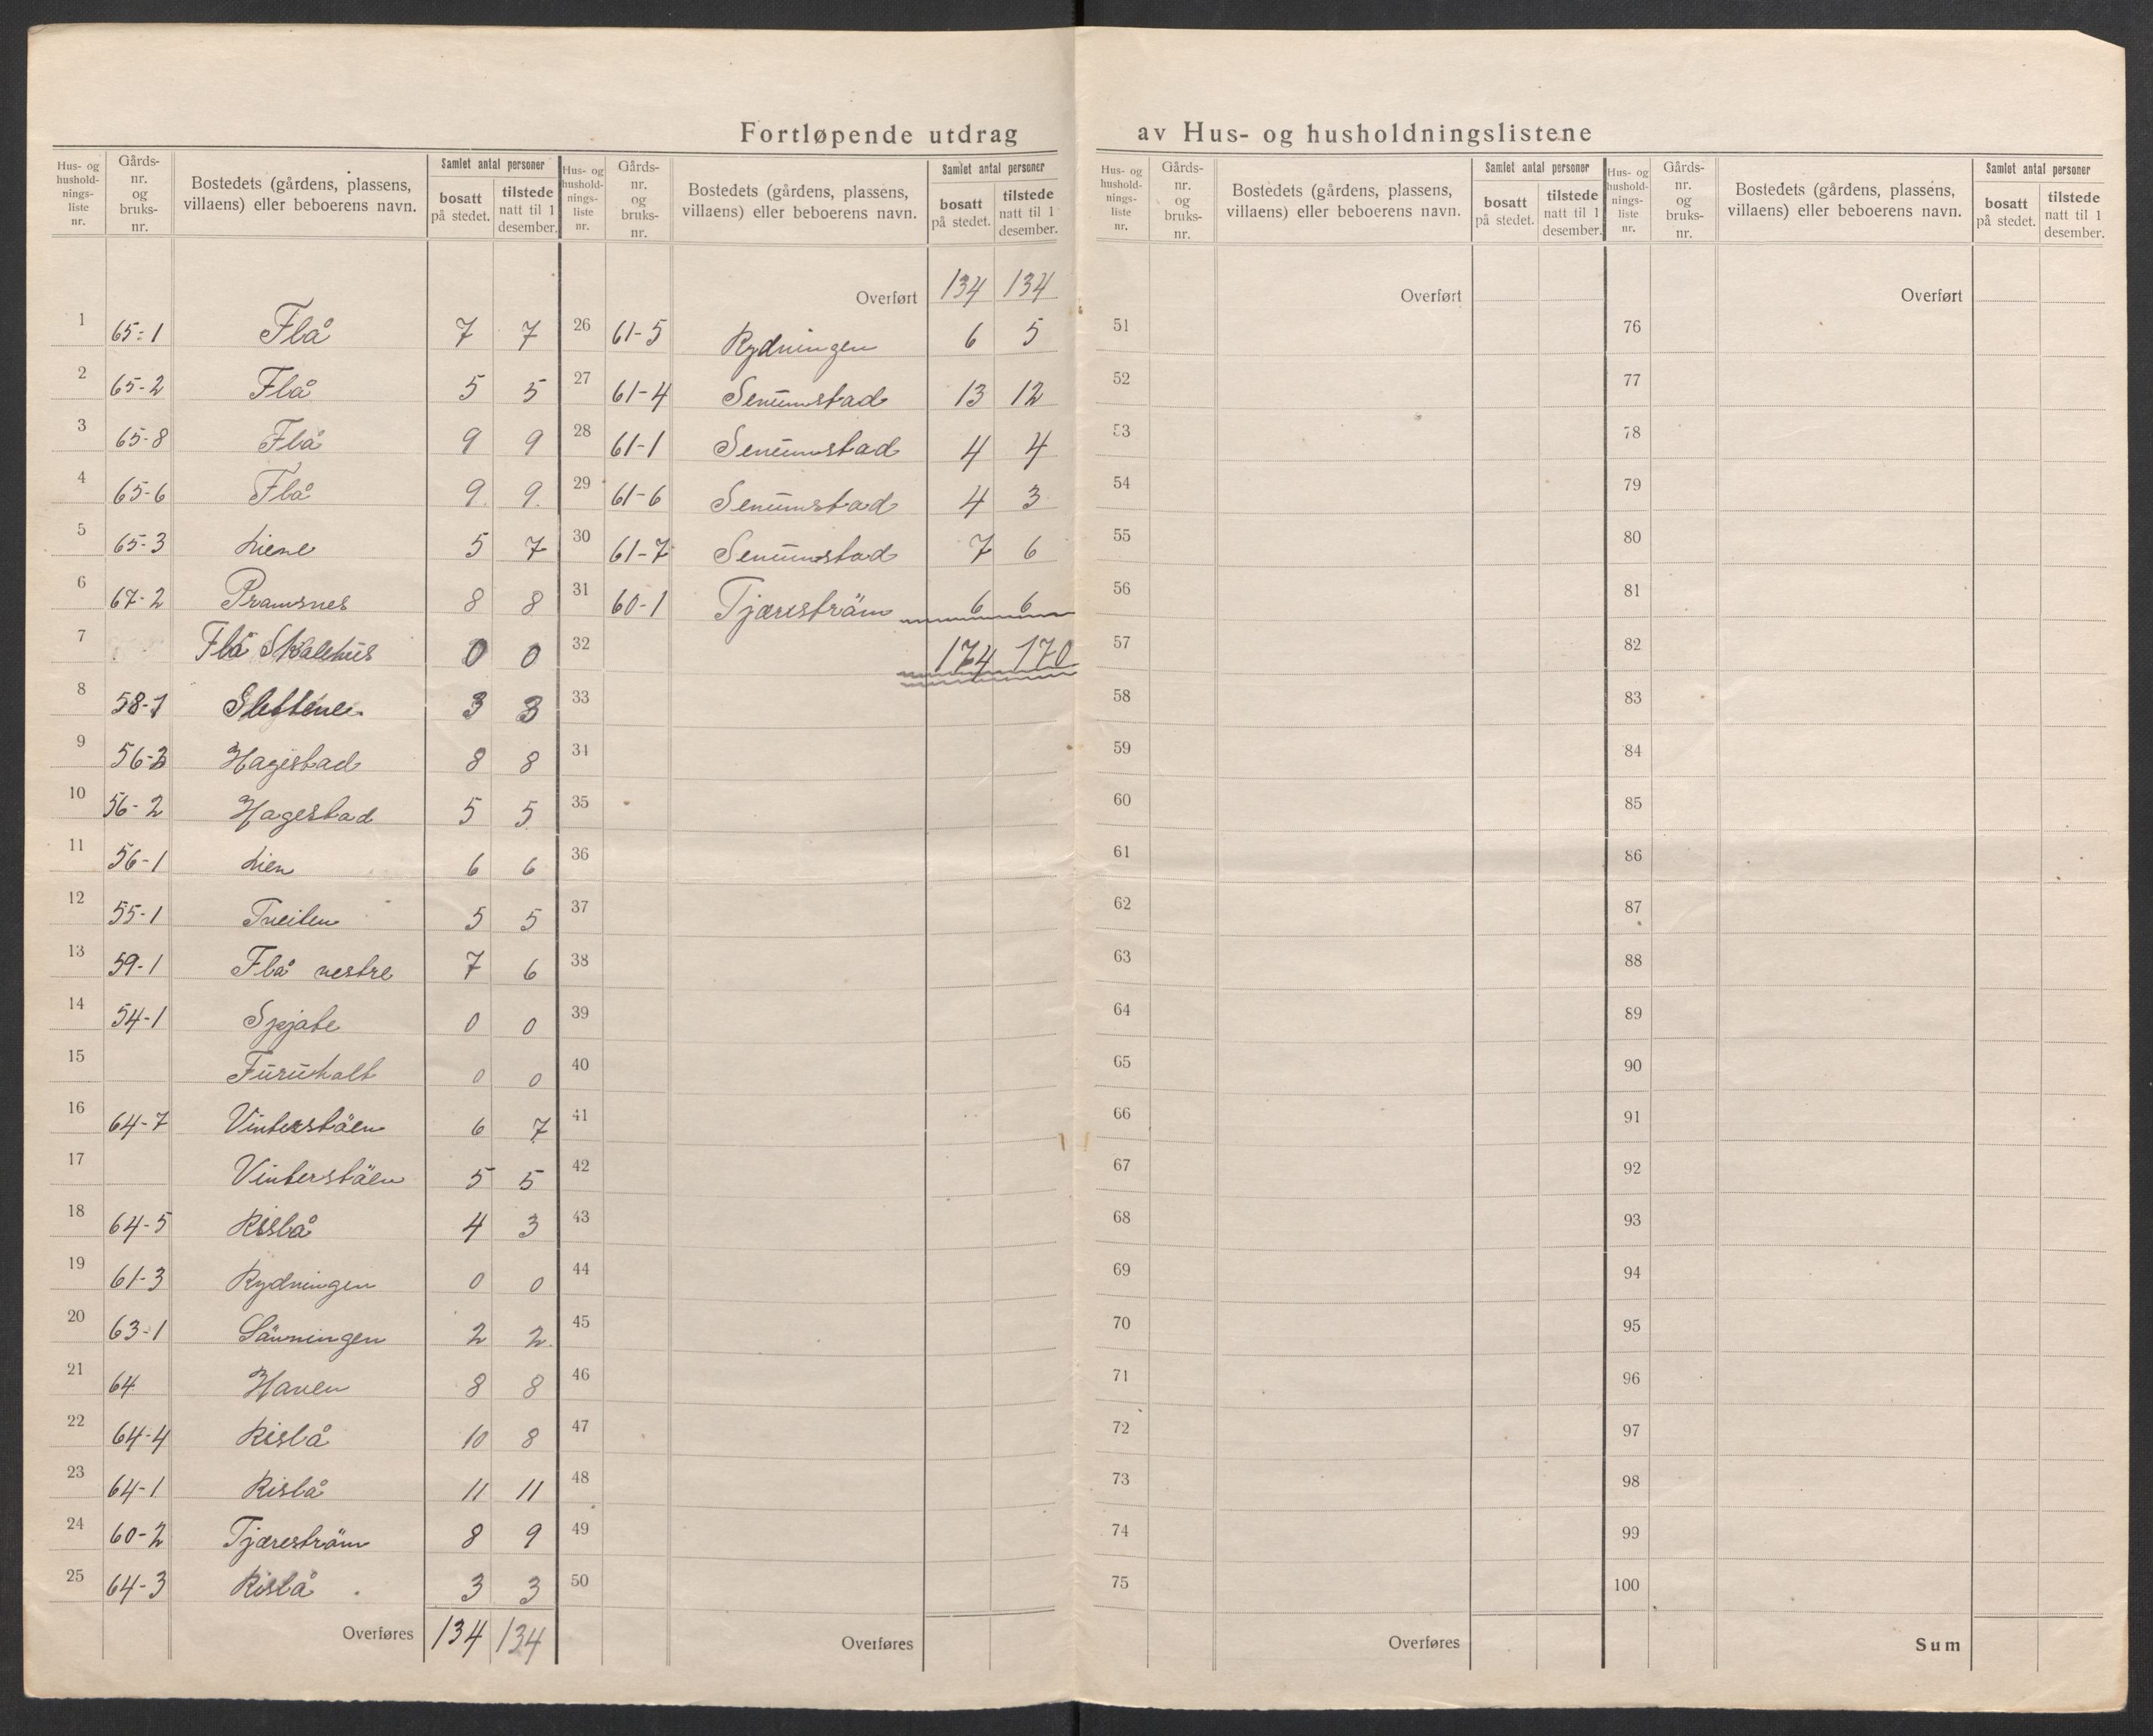 Fortløpende utdrag av Hus- og husholdningslistene
Hus- og hushold-nings-liste nr. | Gårds-nr. og bruks-nr. | Bostedets (gårdens, plassens, villaens) eller beboerens navn. | Samlet antal personer | bosatt på stedet. | tilstede natt til 1 desember.
1 65-1 Flå 7 7
2 65-2 Flå 5 5
3 65-8 Flå 9 9
4 65-6 Flå 9 9
5 65-3 Liene 5 7
6 67-2 Pramsnes 8 8
7 Flå Skolehus 0 0
8 58-1 Slettene 3 3
9 56-3 Hagestad 8 8
10 56-2 Hagestad 5 5
11 56-1 Lien 6 6
12 55-1 Tveiten 5 5
13 59-1 Flå vestre 7 6
14 54-1 Spjote 0 0
15 Furuholt 0 0
16 64-7 Vinterstölen 6 7
17 Vinterstölen 5 5
18 64-5 Rislå 4 3
19 61-3 Rydningen 0 0
20 63-1 2 2
21 64 Haven 8 8
22 64-4 Rislå 10 8
23 64-1 Rislå 11 11
24 60-2 Tjæreström 8 9
25 64-3 Rislå 3 3
Overføres 134 134
Hus- og hushold-nings-liste nr. | Gårds-nr. og bruks-nr. | Bostedets (gårdens, plassens, villaens) eller beboerens navn. | Samlet antal personer | bosatt på stedet. | tilstede natt til 1 desember.
Overført 134 134
26 61-5 Rydningen 6 5
27 61-4 Senumstad 13 12
28 61-1 Senumstad 4 4
29 61-6 Senumstad 4 3
30 61-7 Senumstad 7 6
31 60-1 Tjæreström 6 6
32 174 170
33
34
35
36
37
38
39
40
41
42
43
44
45
46
47
48
49
50
Overføres
Hus- og hushold-nings-liste nr. | Gårds-nr. og bruks-nr. | Bostedets (gårdens, plassens, villaens) eller beboerens navn. | Samlet antal personer | bosatt på stedet. | tilstede natt til 1 desember.
Overført
51
52
53
54
55
56
57
58
59
60
61
62
63
64
65
66
67
68
69
70
71
72
73
74
75
Overføres
Hus- og hushold-nings-liste nr. | Gårds-nr. og bruks-nr. | Bostedets (gårdens, plassens, villaens) eller beboerens navn. | Samlet antal personer | bosatt på stedet. | tilstede natt til 1 desember.
Overført
76
77
78
79
80
81
82
83
84
85
86
87
88
89
90
91
92
93
94
95
96
97
98
99
100
Sum